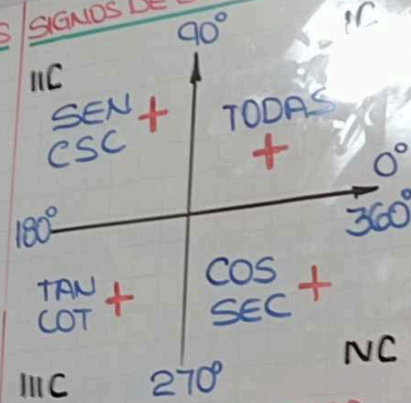 SIGNOS DE
90°
IC
IIC
SEN +
CSC
TODAS
+
0°
360°
180°
TAN +
COT
COS +
SEC
IIIC
270°
NC